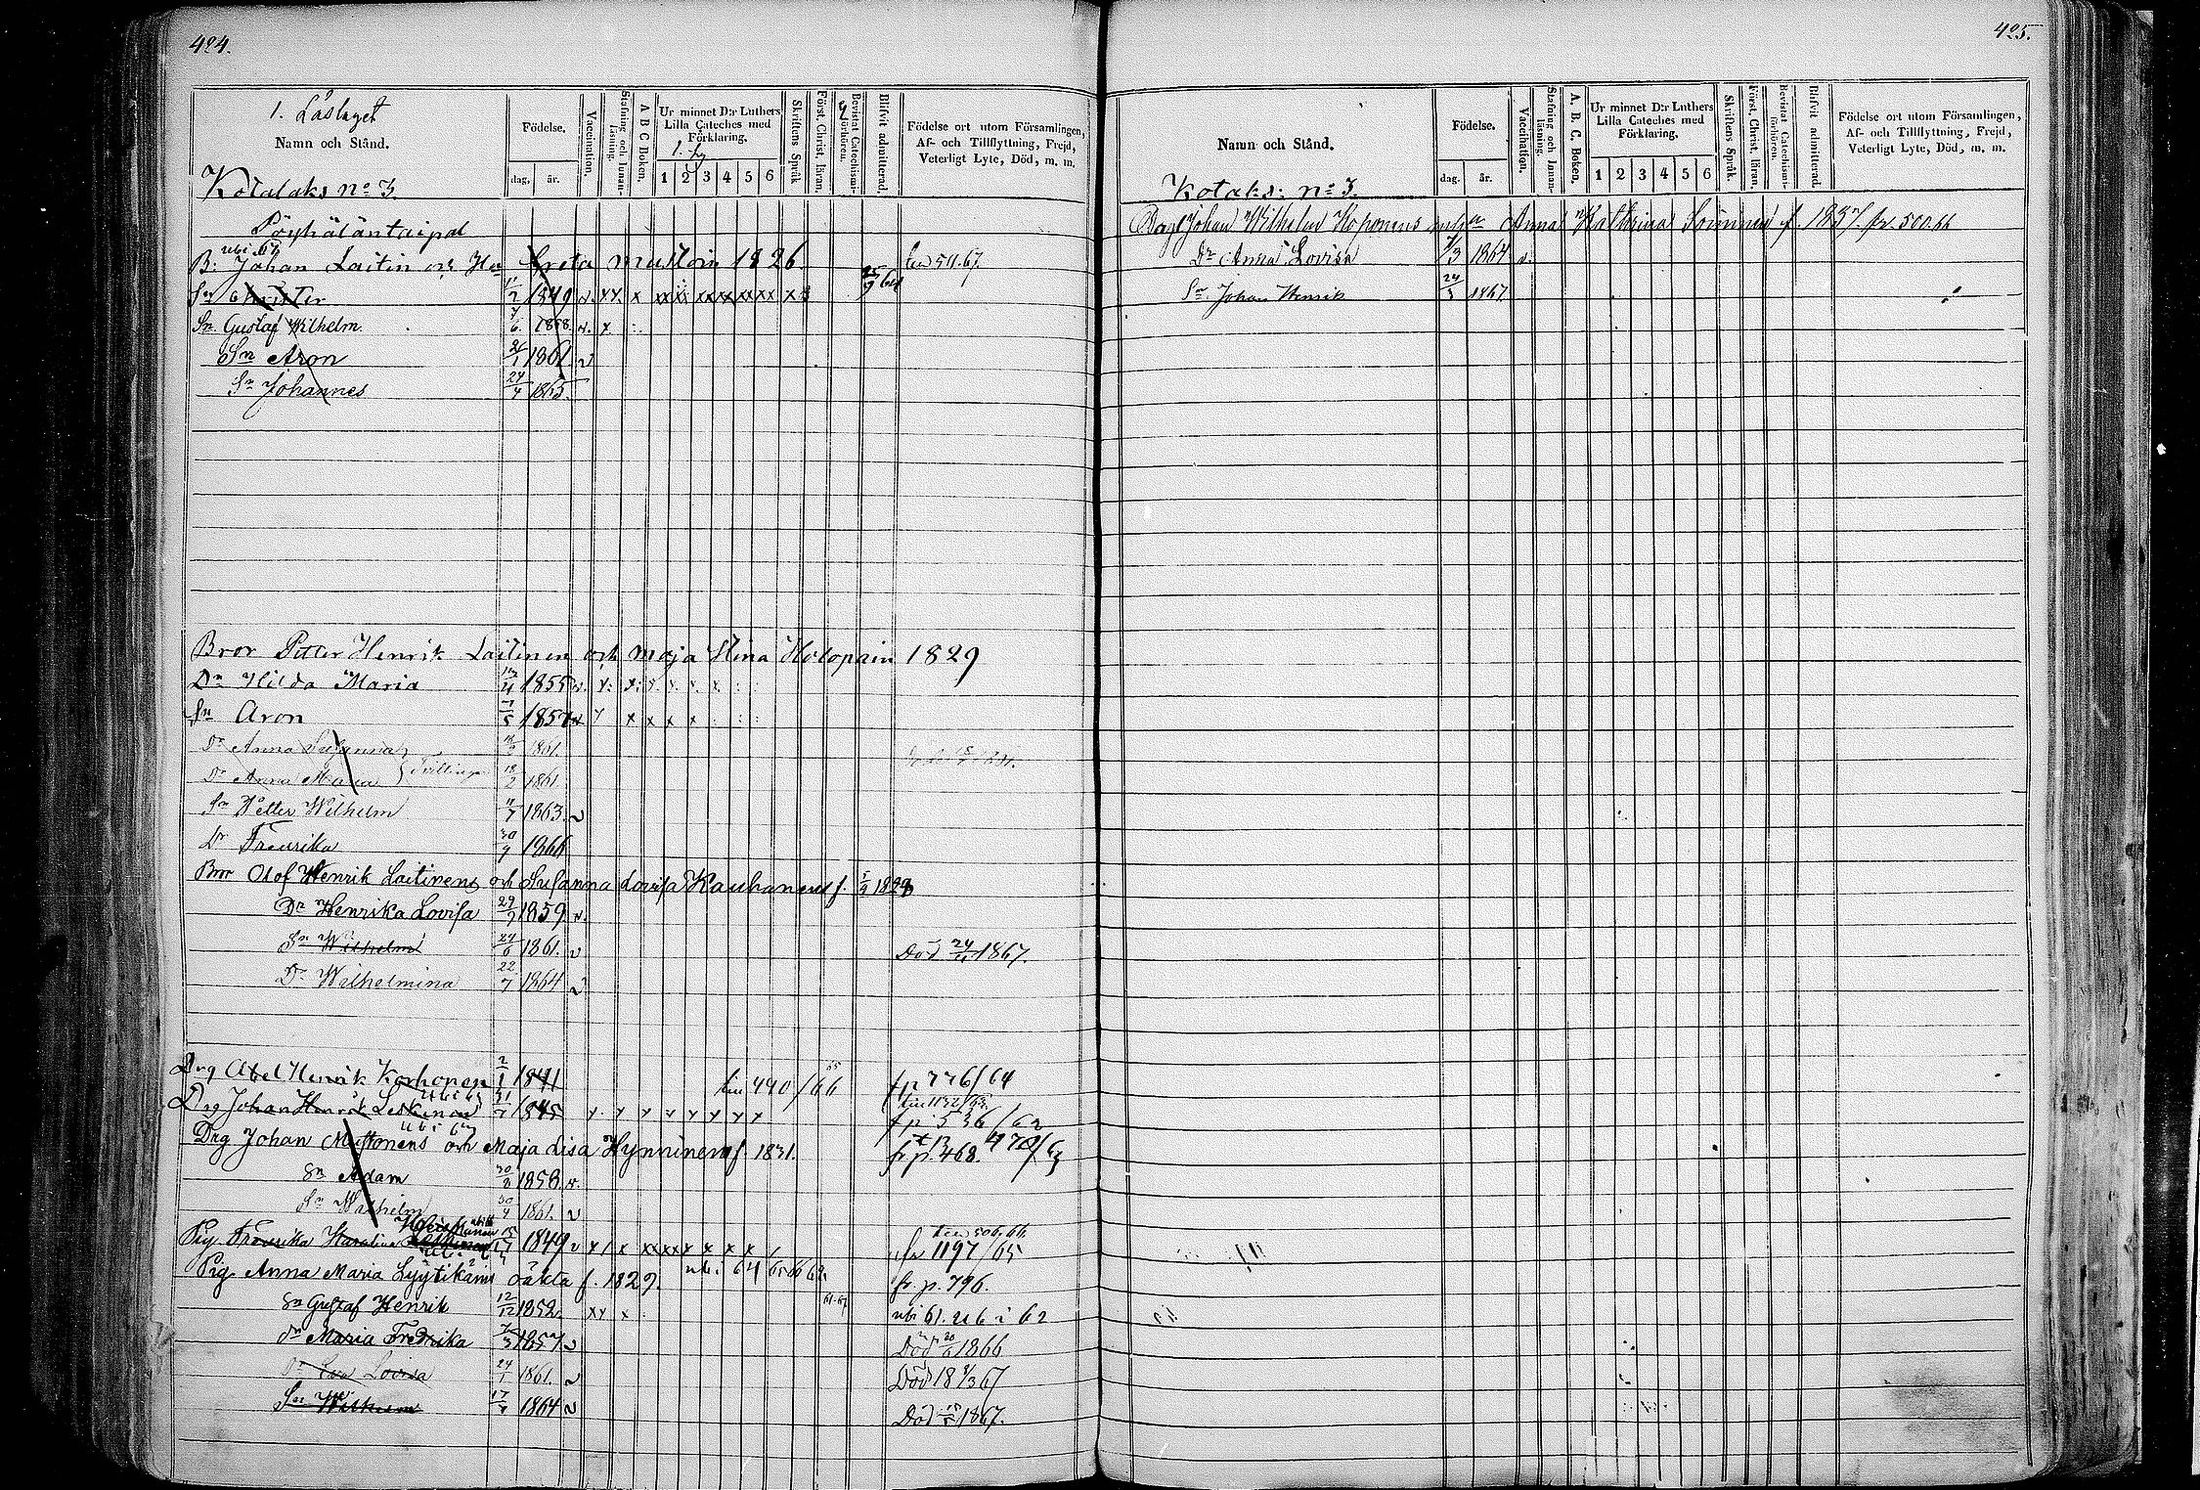 424.
1. Läslaget
Namn och Stånd.
Födelse.
dag.
år.
Vaccination.
Stafning och Innan-läsning.
A B C Boken.
Ur minnet D:r Luthers Lilla Cateches med Förklaring.
1 2 3 4 5 6
Skriftens Språk
Först. Christ. läran.
Bevistat Catechismi-förhören.
Blifvit admitterad.
Födelse ort utom Församlingen, Af- och Tillflyttning, Frejd, Veterligt Lyte, Död, m. m.
Kotalaks No 3.
Pöyhäläntaipal
B: Johan Laitin och Hu Greta Mustoin 1826. 511.67.
Sn 1849 v. x x. x xx xx xx xx xx xx x
Sn Gustaf Wilhelm. 7/6. 1858. v. x
Sn Aron 26/1 1861 v
Sn Johannes 24/4 1865.
Bror Petter Henrik Laitinen och Maja Stina Holopain 1829
Dr Hilda Maria 1855 v. x. x. x. x. x. x.
Sn Aron 7/5 1857 v x x x x x
Dr Anna Susanna 1861.
Dr Anna Maria Tvillingar 18/2 1861.
Sn Petter Wilhelm 1863. v
Dr Fredrika 30/9 1866
Bror Olof Henrik Laitinens och Susanna Lovisa Kauhanens f. 1828
Dr Henrika Lovisa 29/9 1859 v.
Sn Wilhelm 24/6 1861. v Död 1867.
Dr Wilhelmina 22/7 1864 v
Drg Abel Henrik Korhonen 2/1 1841 490/66 fr 776/64
Drg Johan Henrik Leskinen 1845 x x x x x x x x p 536/62
Drg Johan Mustonens och Maja Lisa Hynninen f. 1831. fr p. 468.
Sn Adam 30/8 1858. v.
Sn Wilhelm 1861. v
Pig. Fredrika Karolina 1849 v x x xx xx x x x x fr 1197/65
Pig. Anna Maria Lyytikäins oäkta f. 1829. fr. p. 796.
Sn Gustaf Henrik 12/12 1852. xx x ubi 61. ub i 62
Dr Maria Fredrika 1857 v Död 1866
Dr Eva Lovisa 24/1 1861. v Död 18 67
Sn Wilhelm 1864 v Död 1867.
425.
Namn och Stånd.
Födelse.
dag.
år.
Vaccination.
Stafning och Innan-läsning.
A. B. C. Boken.
Ur minnet D:r Luthers Lilla Cateches med Förklaring.
1 2 3 4 5 6
Skriftens Språk.
Först. Christ. läran.
Bevistat Catechismi-förhören.
Blifvit admitterad.
Födelse ort utom Församlingen, Af- och Tillflyttning, Frejd, Veterligt Lyte, Död, m. m.
Kotaks: No 3.
Johan Wilhelm Koponens Anna Kathrina Soininen f. 1837. fr. 500.66
Dr Anna Lovisa 1864 v.
Sn Johan Henrik 1867